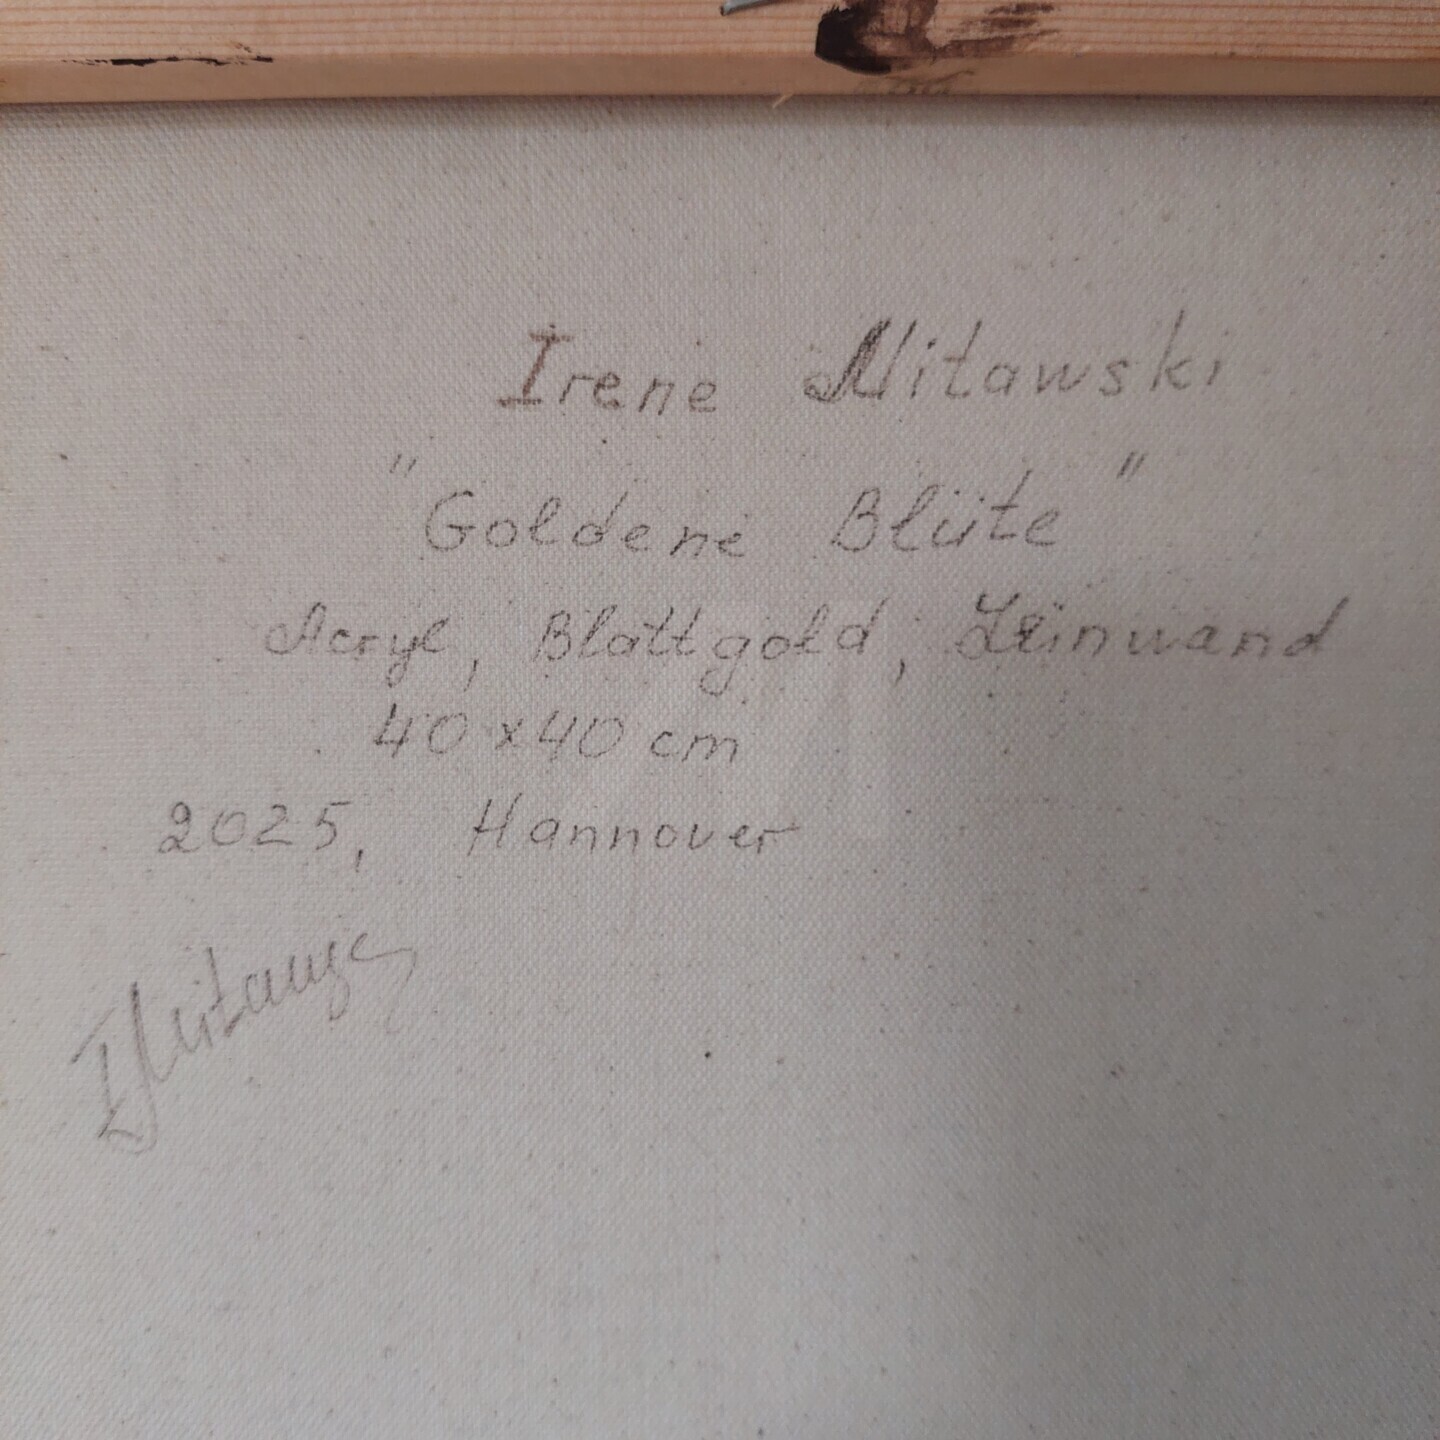 Irene Nitawski
"Goldene Blüte"
Acryl, Blattgold, Leinwand
40 x 40 cm
2025, Hannover